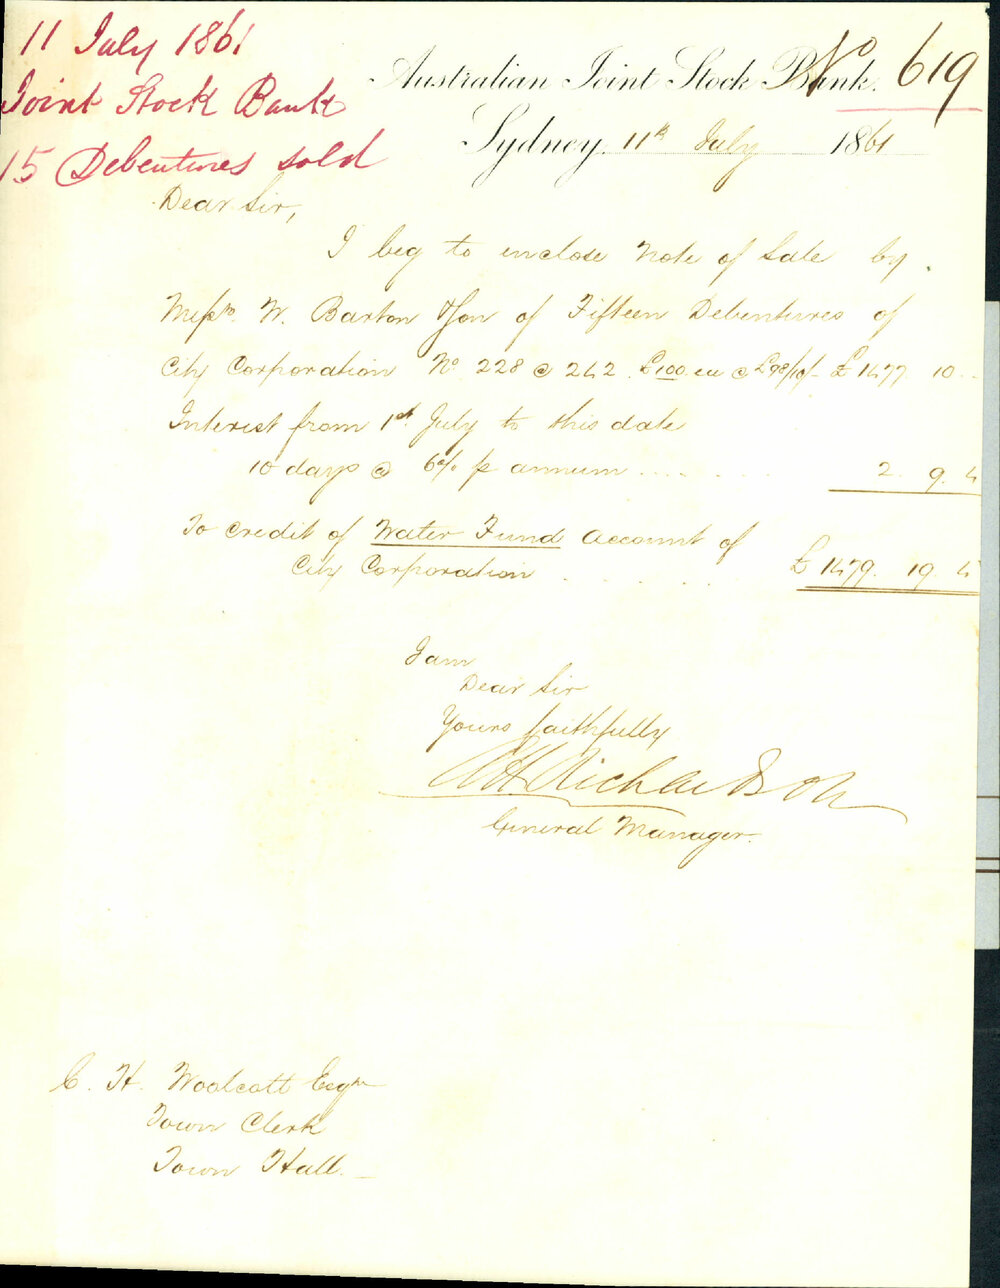 11 July 1861
Joint Stock Bank
15 Debentures sold
No 619
Australian Joint Stock Bank.
Sydney, 11th July 1861
Dear Sir,
I beg to enclose Note of Sale by
Messrs. W. Barton & Son of Fifteen Debentures of
City Corporation No 228 @ 242 £100 ea @ £98/10/- £1477 10 -
Interest from 1st July to this date
10 days @ 6% p annum ........ 2. 9. 4
To Credit of Water Fund Account of
City Corporation ........ £1479. 19. 4
I am
Dear Sir
Yours faithfully
Richardson
General Manager.
C. H. Woolcott Esqre
Town Clerk
Town Hall.